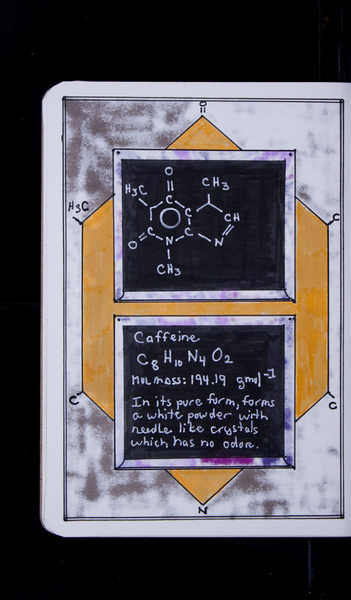 O
O
H₃C
CH₃
H₃C
C
C
CH
C
O
C
C
N
N
CH₃
Caffeine
C₈ H₁₀ N₄ O₂
Mol mass: 194.19 gmol⁻¹
In its pure form, forms
a white powder with
needle like crystals
which has no odore.
C
C
N